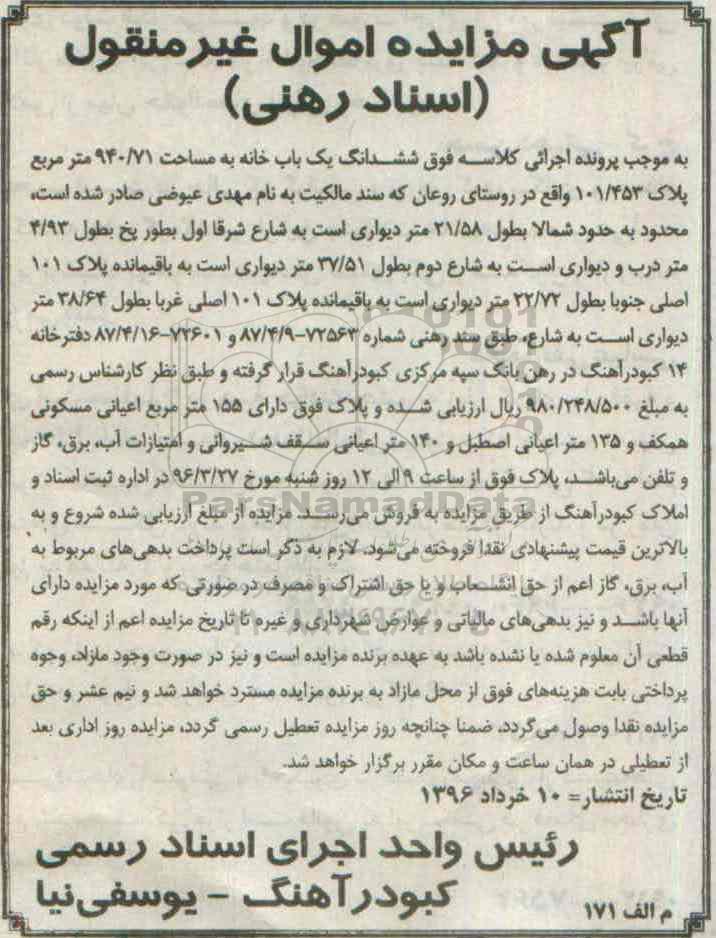 آگهی مزایده اموال غیرمنقول
(اسناد رهنی)
به موجب پرونده اجرائی کلاسه فوق ششدانگ یک باب خانه به مساحت ۹۴۰/۷۱ متر مربع
پلاک ۱۰۱/۴۵۳ واقع در روستای روعان که سند مالکیت به نام مهدی عیوضی صادر شده است،
محدود به حدود شمالا بطول ۲۱/۵۸ متر دیواری است به شارع شرقا اول بطور پخ بطول ۴/۹۳
متر درب و دیواری است به شارع دوم بطول ۳۷/۵۱ متر دیواری است به باقیمانده پلاک ۱۰۱
اصلی جنوبا بطول ۲۲/۷۲ متر دیواری است به باقیمانده پلاک ۱۰۱ اصلی غربا بطول ۳۸/۶۴ متر
دیواری است به شارع، طبق سند رهنی شماره ۷۲۵۶۳-۸۷/۴/۹ و ۷۲۶۰۱-۸۷/۴/۱۶ دفترخانه
۱۴ کبودرآهنگ در رهن بانک سپه مرکزی کبودرآهنگ قرار گرفته و طبق نظر کارشناس رسمی
به مبلغ ۹۸۰/۲۴۸/۵۰۰ ریال ارزیابی شده و پلاک فوق دارای ۱۵۵ متر مربع اعیانی مسکونی
همکف و ۱۳۵ متر اعیانی اصطبل و ۱۴۰ متر اعیانی سقف شیروانی و امتیازات آب، برق، گاز
و تلفن می‌باشد، پلاک فوق از ساعت ۹ الی ۱۲ روز شنبه مورخ ۹۶/۳/۲۷ در اداره ثبت اسناد و
املاک کبودرآهنگ از طریق مزایده به فروش می‌رسد. مزایده از مبلغ ارزیابی شده شروع و به
بالاترین قیمت پیشنهادی نقدا فروخته می‌شود، لازم به ذکر است پرداخت بدهی‌های مربوط به
آب، برق، گاز اعم از حق انشعاب و یا حق اشتراک و مصرف در صورتی که مورد مزایده دارای
آنها باشد و نیز بدهی‌های مالیاتی و عوارض شهرداری و غیره تا تاریخ مزایده اعم از اینکه رقم
قطعی آن معلوم شده یا نشده باشد به عهده برنده مزایده است و نیز در صورت وجود مازاد، وجوه
پرداختی بابت هزینه‌های فوق از محل مازاد به برنده مزایده مسترد خواهد شد و نیم عشر و حق
مزایده نقدا وصول می‌گردد، ضمنا چنانچه روز مزایده تعطیل رسمی گردد، مزایده روز اداری بعد
از تعطیلی در همان ساعت و مکان مقرر برگزار خواهد شد.
تاریخ انتشار= ۱۰ خرداد ۱۳۹۶
رئیس واحد اجرای اسناد رسمی
کبودرآهنگ - یوسفی‌نیا
م الف ۱۷۱
ParsNamadData